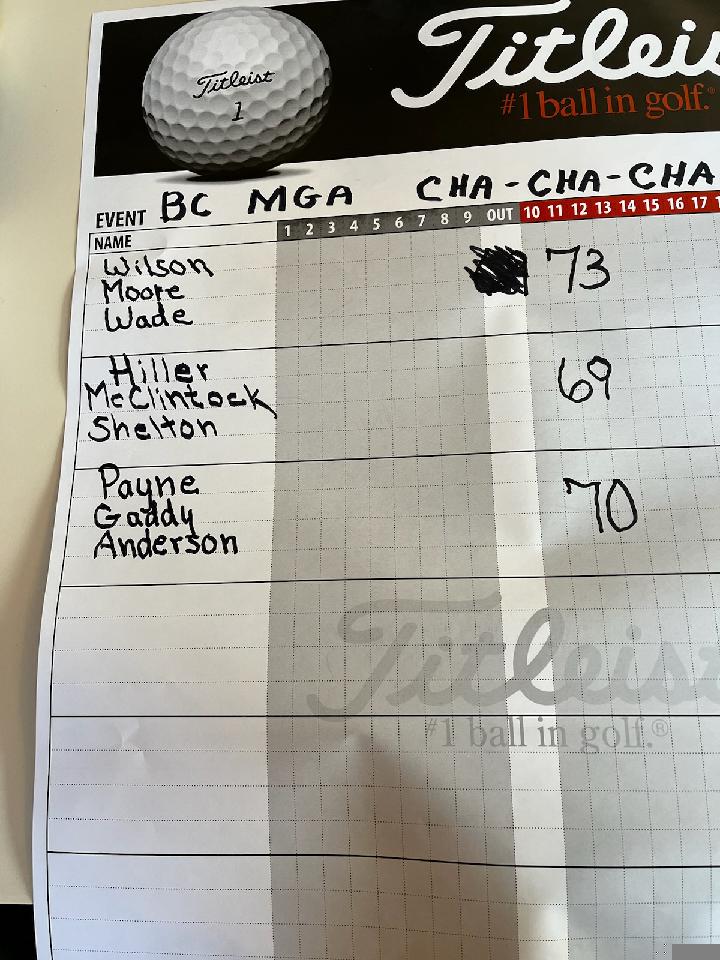 Titleist
1
Titleis
#1 ball in golf.®
EVENT BC MGA CHA-CHA-CHA
NAME 1 2 3 4 5 6 7 8 9 OUT 10 11 12 13 14 15 16 17
Wilson
Moore
Wade
73
Hiller
McClintock
Shelton
69
Payne
Gaddy
Anderson
70
Titleist
#1 ball in golf.®